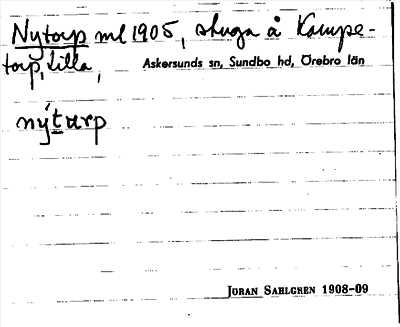 Nytorp ml 1905, stuga å Kampe-
torp, Lilla,
Askersunds sn, Sundbo hd, Örebro län
nýtωrp
JÖRAN SAHLGREN 1908-09